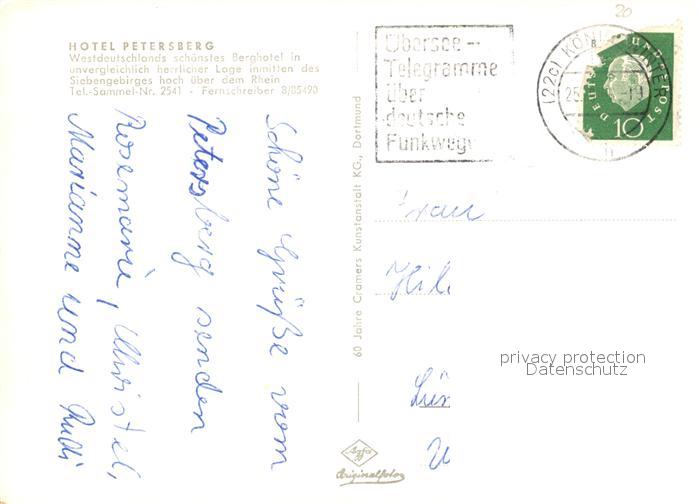 HOTEL PETERSBERG
Westdeutschlands schönstes Berghotel in
unvergleichlich herrlicher Lage inmitten des
Siebengebirges hoch über dem Rhein
Tel.-Sammel-Nr. 2541 - Fernschreiber 8/85420
Schöne Grüße vom
Petersberg senden
Rosemarie, Christel,
Marianne und Rudi
60 Jahre Cramers Kunstanstalt KG., Dortmund
Übersee-
Telegramme
über
deutsche
Funkwege
20
(22c) KÖNIGSWINTER
25.
DEUTSCHE BUNDESPOST
10
Frau
Hil
Lün
privacy protection
Datenschutz
Agfa
Originalfoto